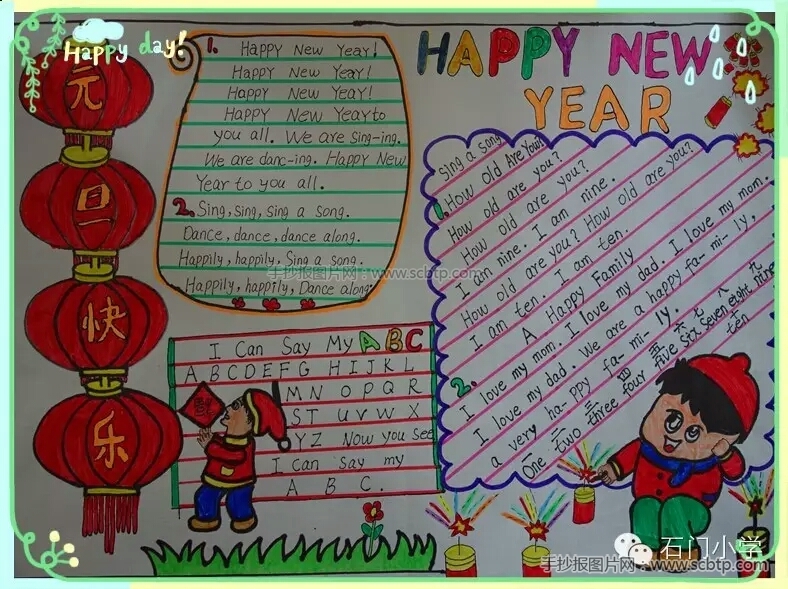 Happy day!
元
旦
快
乐
HAPPY NEW
YEAR
1. Happy New Year!
Happy New Year!
Happy New Year!
Happy New Year to
you all. We are sing-ing.
We are danc-ing. Happy New
Year to you all.
2. Sing, sing, sing a song.
Dance, dance, dance along.
Happily, happily, Sing a song.
Happily, happily, Dance along.
手抄报图片网:www.scbtp.com
I Can Say My ABC
A B C D E F G H I J K L
M N O P Q R
S T U V W X
Y Z Now you see
I Can Say my
A B C.
Sing a song
1. How old Are You?
How old are you?
How old are you?
I am nine. I am nine.
How old are you? How old are you?
I am ten. I am ten.
A Happy Family
2. I love my mom. I love my dad. I love my mom.
I love my dad. We are a happy fa-mi-ly,
a very ha-ppy fa-mi-ly.
一 二 三 四 五 六 七 八 九
One two three four five six seven eight nine
ten
石门小学
手抄报图片网:www.scbtp.com